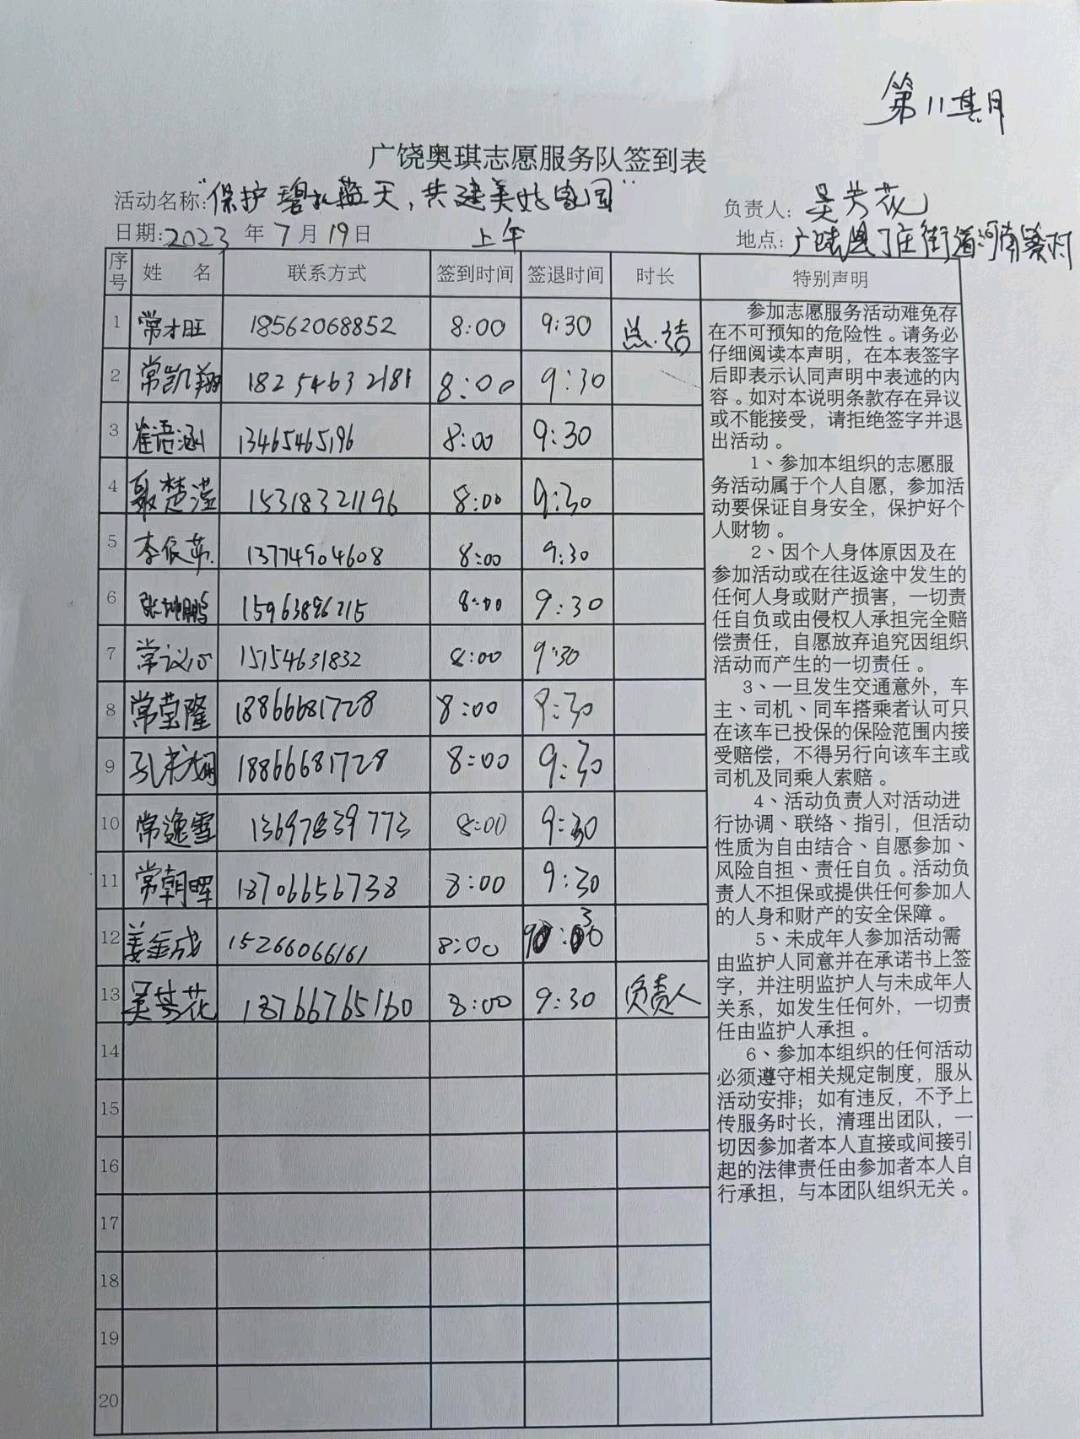 第11期
广饶奥琪志愿服务队签到表
活动名称:"保护碧水蓝天,共建美好家园"
负责人: 吴芳花
日期:2023 年 7 月 19 日 上午
地点: 广饶县丁庄街道河南寨村
序号 姓 名 联系方式 签到时间 签退时间 时长 特别声明
1 常才旺 18562068852 8:00 9:30 总结
2 常凯翔 18254632181 8:00 9:30
3 崔语涵 13465465196 8:00 9:30
4 聂楚滢 15318321196 8:00 9:30
5 李依 13774904608 8:00 9:30
6 张坤鹏 15963896215 8:00 9:30
7 常议心 15154631832 8:00 9:30
8 常莹隆 18866681728 8:00 9:30
9 孔 18866681728 8:00 9:30
10 常逸雪 13697839773 8:00 9:30
11 常朝晖 18706656738 8:00 9:30
12 姜金成 15266066161 8:00 9:30
13 吴芳花 18766765160 8:00 9:30 负责人
14
15
16
17
18
19
20
参加志愿服务活动难免存
在不可预知的危险性。请务必
仔细阅读本声明，在本表签字
后即表示认同声明中表述的内
容。如对本说明条款存在异议
或不能接受，请拒绝签字并退
出活动。
1、参加本组织的志愿服
务活动属于个人自愿，参加活
动要保证自身安全，保护好个
人财物。
2、因个人身体原因及在
参加活动或在往返途中发生的
任何人身或财产损害，一切责
任自负或由侵权人承担完全赔
偿责任，自愿放弃追究因组织
活动而产生的一切责任。
3、一旦发生交通意外，车
主、司机、同车搭乘者认可只
在该车已投保的保险范围内接
受赔偿，不得另行向该车主或
司机及同乘人索赔。
4、活动负责人对活动进
行协调、联络、指引，但活动
性质为自由结合、自愿参加、
风险自担、责任自负。活动负
责人不担保或提供任何参加人
的人身和财产的安全保障。
5、未成年人参加活动需
由监护人同意并在承诺书上签
字，并注明监护人与未成年人
关系，如发生任何外，一切责
任由监护人承担。
6、参加本组织的任何活动
必须遵守相关规定制度，服从
活动安排；如有违反，不予上
传服务时长，清理出团队，一
切因参加者本人直接或间接引
起的法律责任由参加者本人自
行承担，与本团队组织无关。